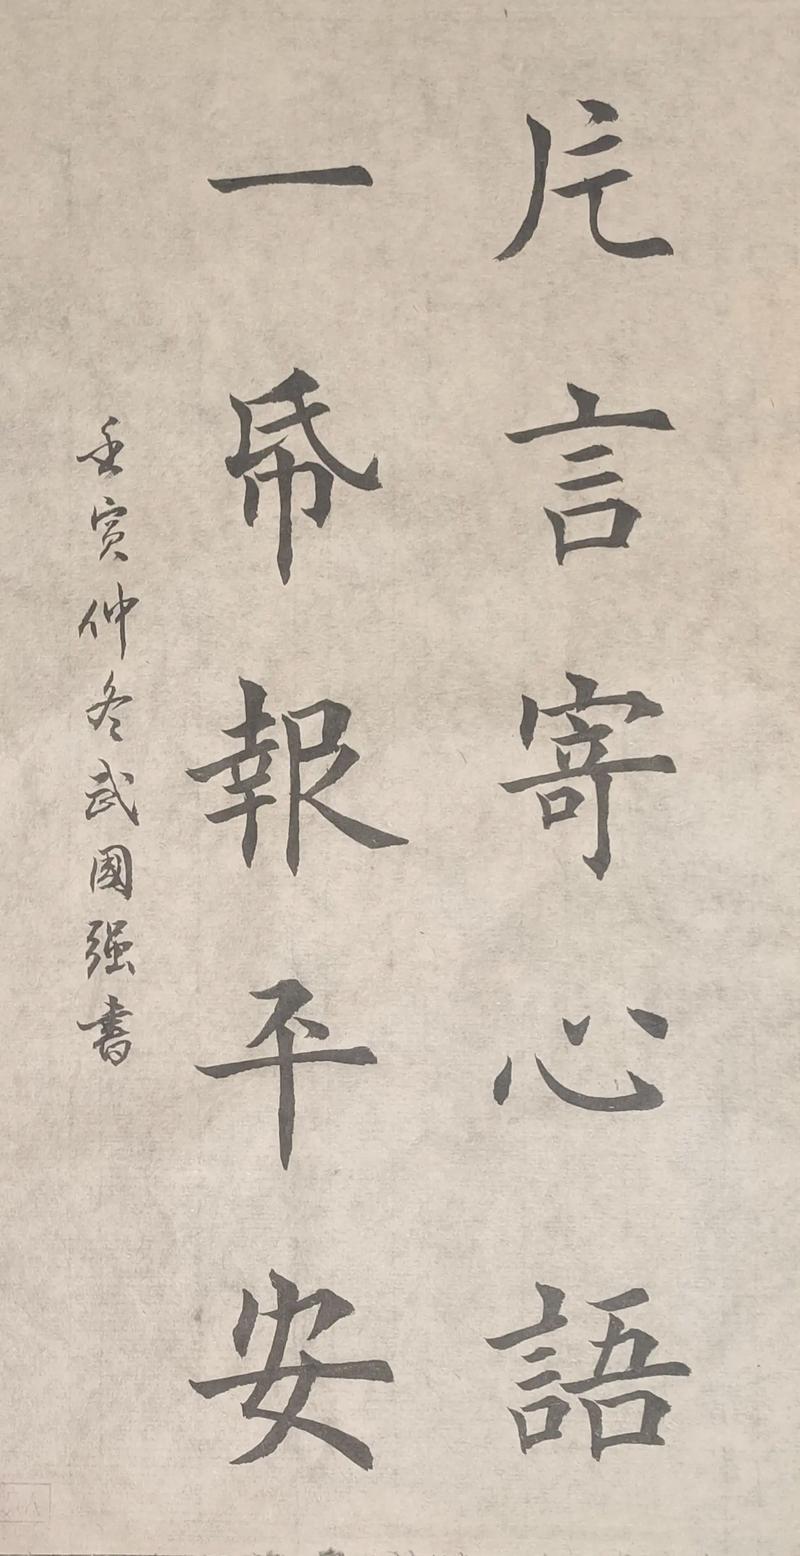 片言寄心語
一帋報平安
壬寅仲冬武國强書